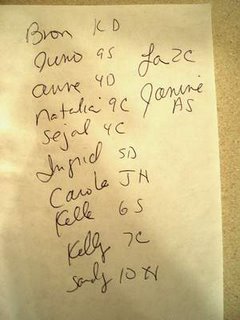 Bron KD
Juno 9S
anne 4D
Natalia 9C
Sejal 4C
Ingrid 5D
Carole JH
Kelle 6S
Kelly 7C
Sandy 10H
La 2C
Janine
AS